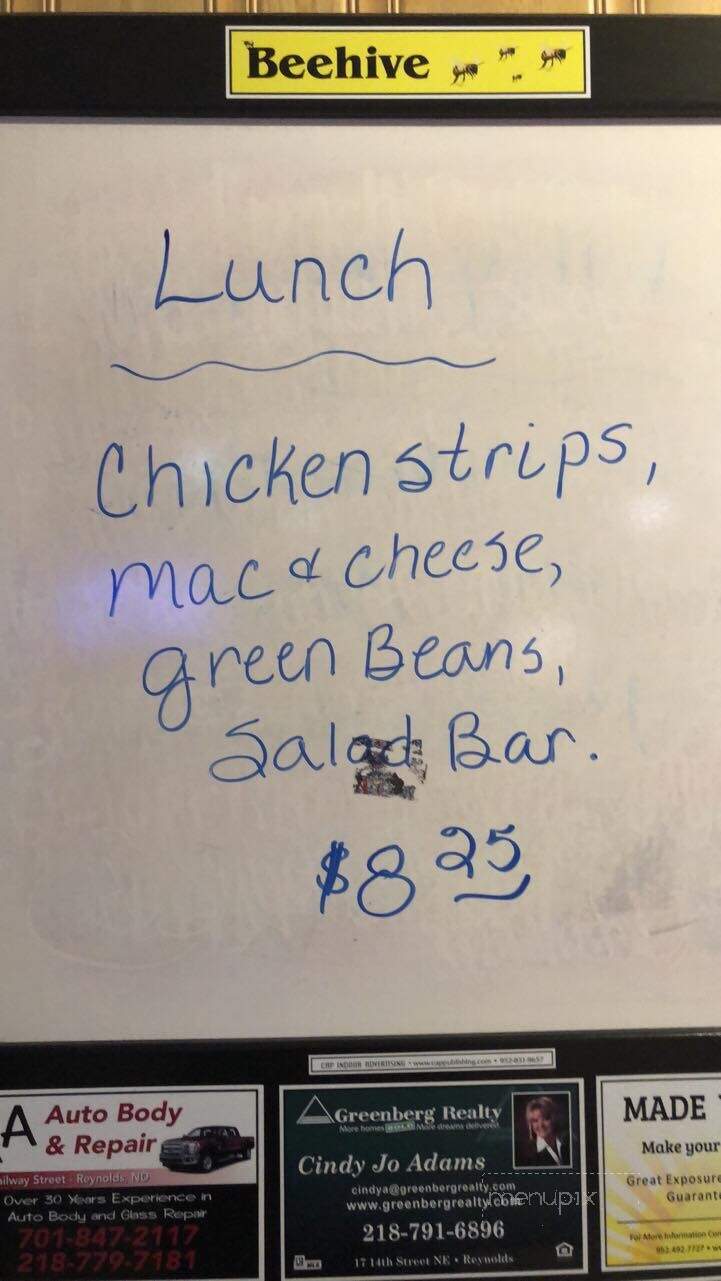 Beehive
Lunch
Chicken strips,
mac & cheese,
green Beans,
Salad Bar.
$8 25
CAP INDOOR ADVERTISING • www.cappublishing.com • 952-831-9657
A Auto Body
& Repair
ailway Street - Reynolds, ND
Over 30 Years Experience in
Auto Body and Glass Repair
701-847-2117
218-779-7181
Greenberg Realty
More homes SOLD More dreams delivered.
Cindy Jo Adams
cindya@greenbergrealty.com
www.greenbergrealty.com
218-791-6896
17 14th Street NE • Reynolds
menupix
MADE
Make your
Great Exposure
Guarant
For More Information Con
952.492.7727 • w